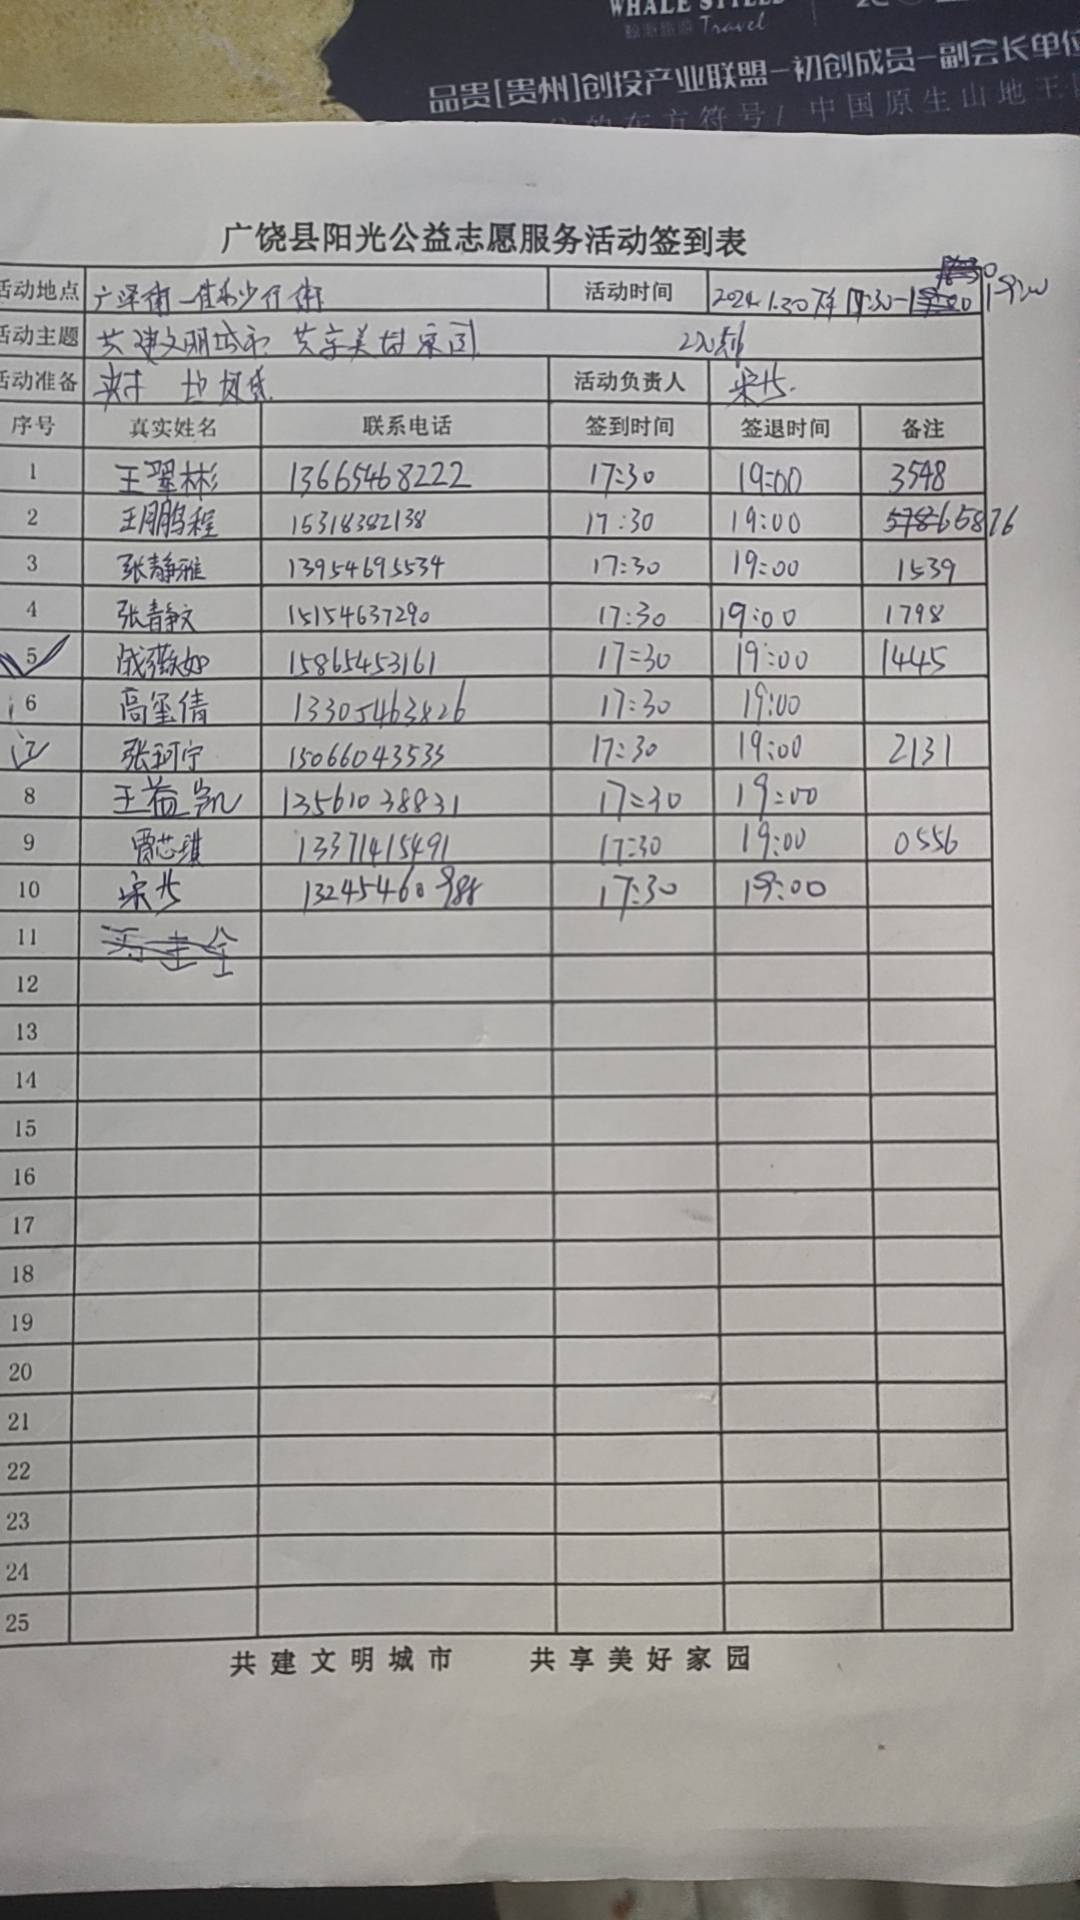 WHALE STYLE
Travel
品贵[贵州]创投产业联盟-初创成员-副会长单位
的东方符号/ 中国原生山地王
广饶县阳光公益志愿服务活动签到表
活动地点 广 街 步行街 活动时间 2024.1.30 下午 17:30-19:00
活动主题 共建文明城市 共享美好家园
活动准备 夹子 垃圾袋 活动负责人 宋
序号 真实姓名 联系电话 签到时间 签退时间 备注
1 王翠彬 13665468222 17:30 19:00 3548
2 王鹏程 15318382138 17:30 19:00 65876
3 张静雅 13954695534 17:30 19:00 1539
4 张静文 15154637290 17:30 19:00 1798
5 15865453161 17:30 19:00 1445
6 高玺倩 13305463826 17:30 19:00
张珂宁 15066043535 17:30 19:00 2131
8 王益凯 13561038831 17:30 19:00
9 贾芯琪 13371415491 17:30 19:00 0556
10 宋 13245460988 17:30 19:00
11
12
13
14
15
16
17
18
19
20
21
22
23
24
25
共建文明城市 共享美好家园